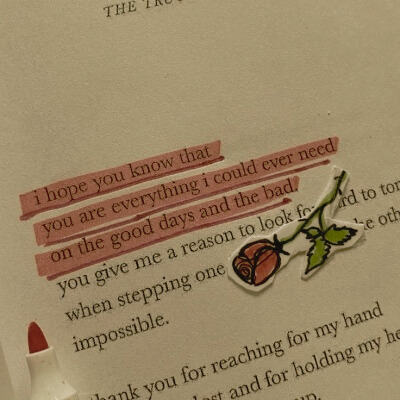 THE TRU
i hope you know that
you are everything i could ever need
on the good days and the bad
you give me a reason to look
when stepping one
impossible.
thank you for reaching for my hand
and for holding my